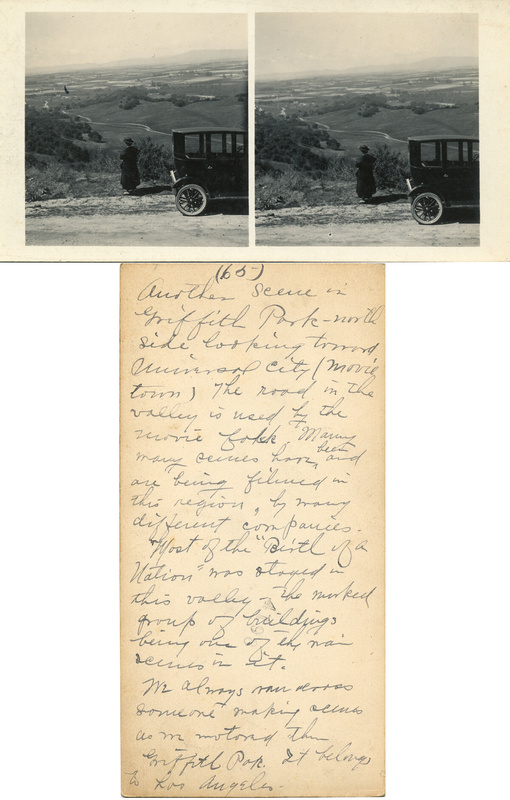 (65)
Another scene in
Griffith Park - north
side looking toward
Universal City (movie
town) The road in the
valley is used by the
movie folk. Many
many scenes have been and
are being filmed in
this region, by many
different companies.
Most of the "Birth of a
Nation" was staged in
this valley - the marked
group of buildings
being one of the main
scenes in it.
We always ran across
someone making scenes
as we motored thru
Griffith Park. It belongs
to Los Angeles -